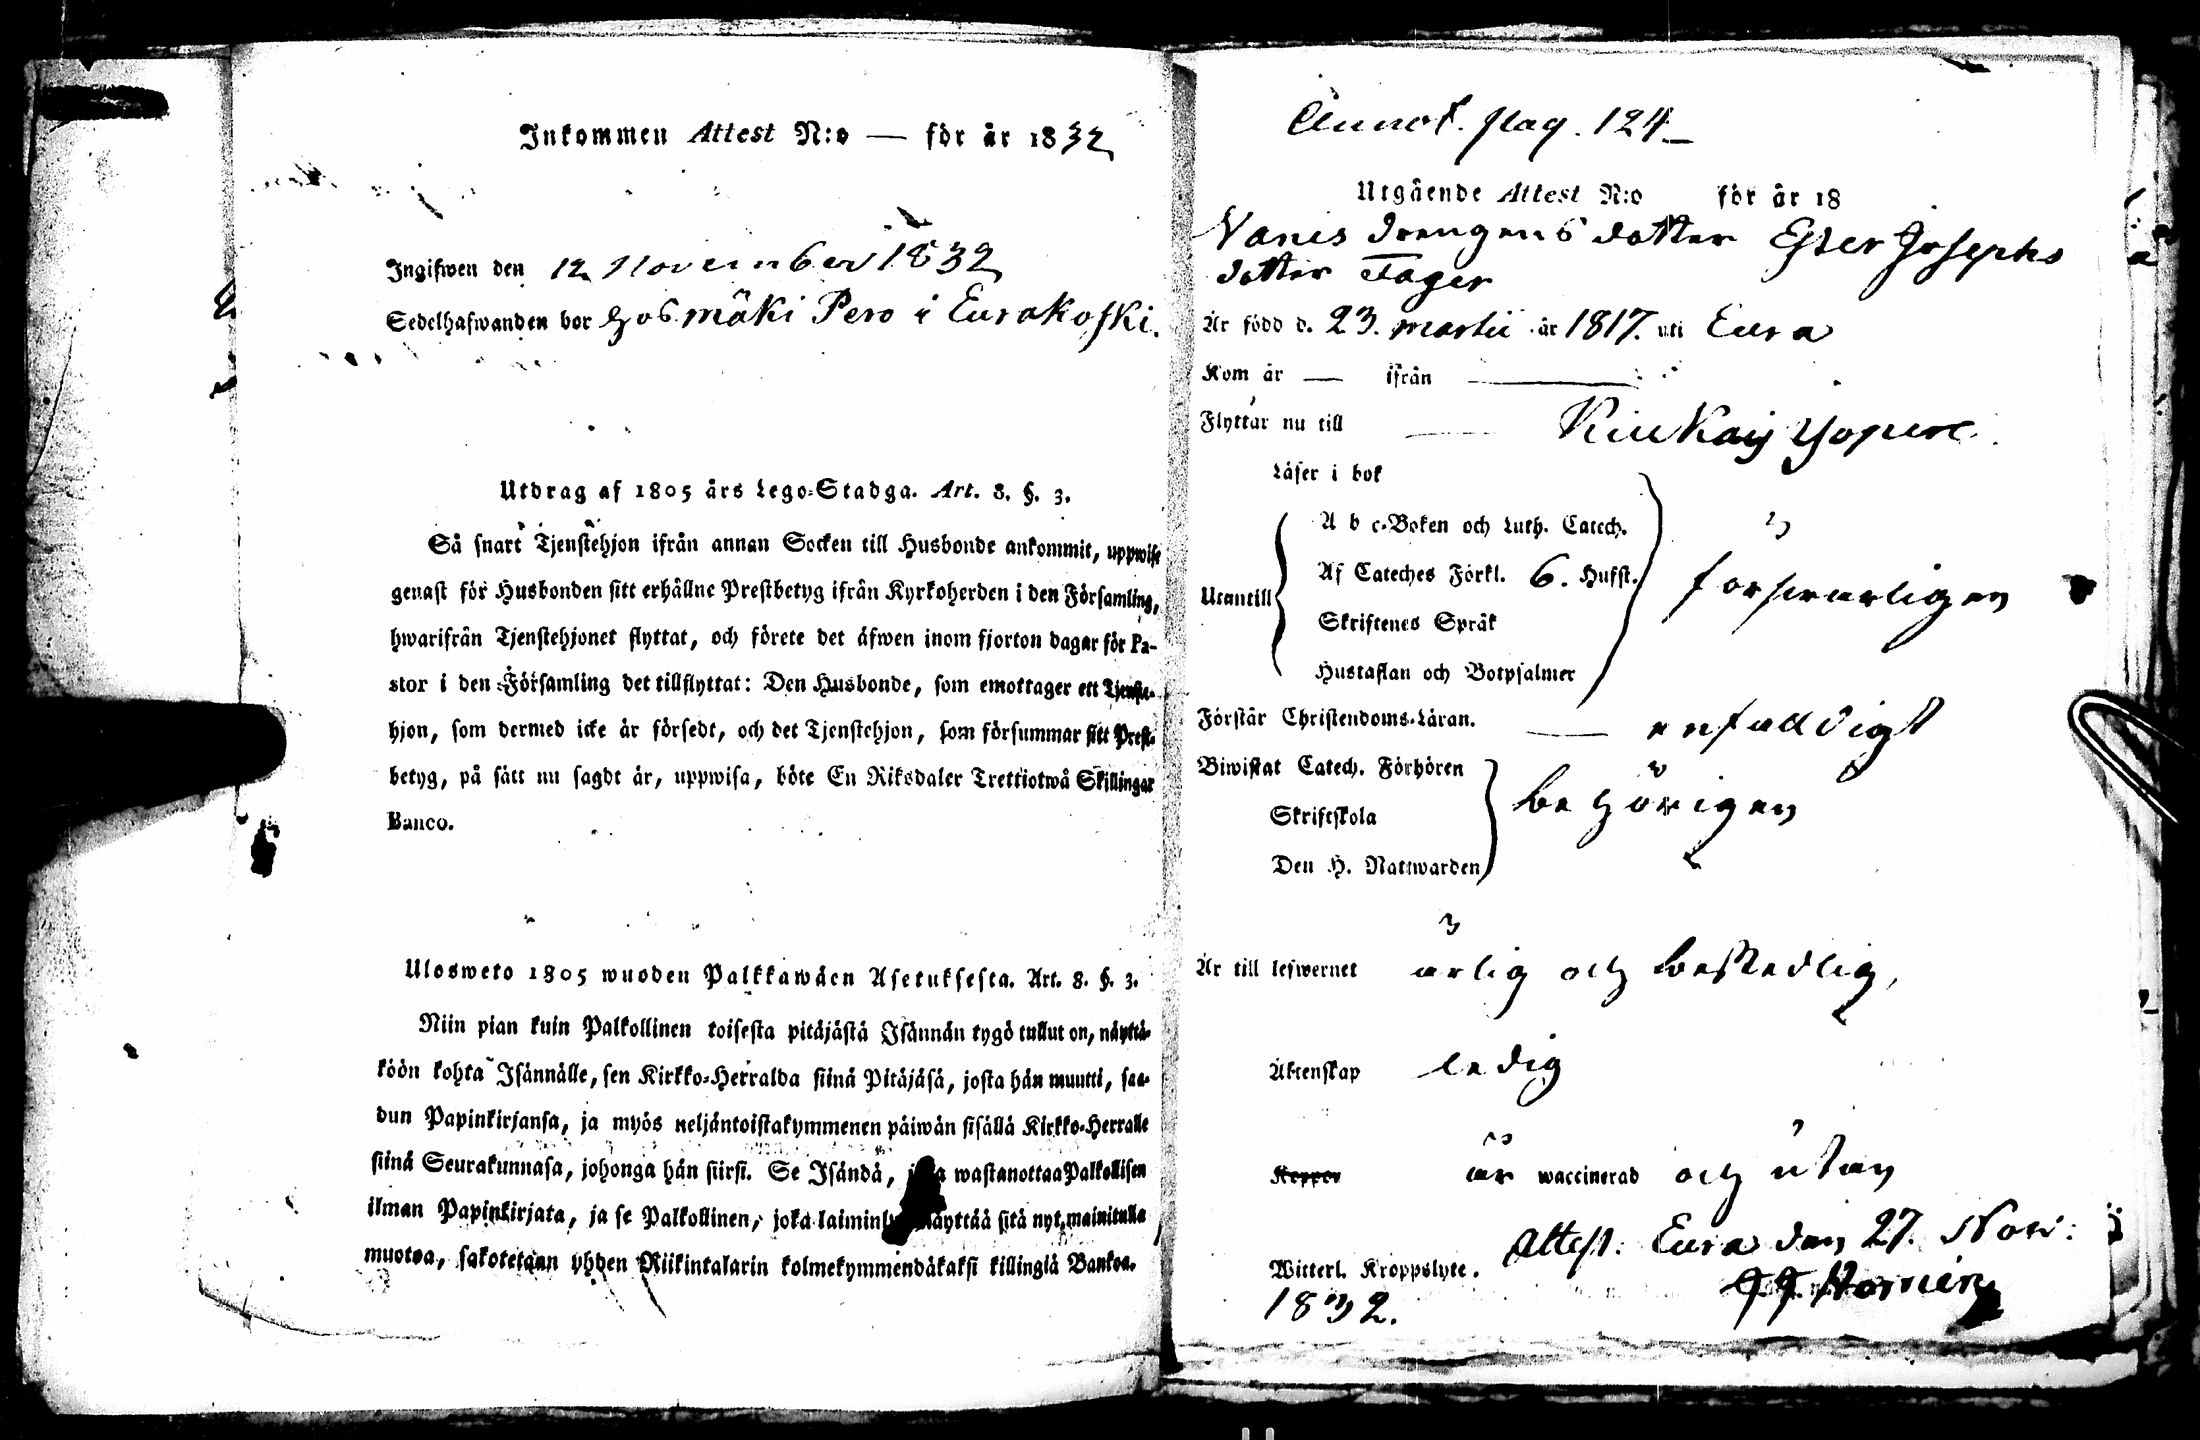 Inkommen Attest N:o — för år 1832
Ingifwen den 12 November 1832
Sedelhafwanden bor hos mäki Pero i Eurakoski.
Utdrag af 1805 års Lego-Stadga. Art. 8. §. 3.
Så snart Tjenstehjon ifrån annan Socken till Husbonde ankommit, uppwise
genast för Husbonden sitt erhållne Prestbetyg ifrån Kyrkoherden i den Församling,
hwarifrån Tjenstehjonet flyttat, och förete det äfwen inom fjorton dagar för Pa-
stor i den Församling det tillflyttat: Den Husbonde, som emottager ett Tjenste-
hjon, som dermed icke är försedt, och det Tjenstehjon, som försummar sitt Prest-
betyg, på sätt nu sagdt är, uppwisa, böte En Riksdaler Trettiotwå Skillingar
Banco.
Ulosweto 1805 wuoden Palkkawäen Asetuksesta. Art. 8. §. 3.
Niin pian kuin Palkollinen toisesta pitäjästä Isännän tygö tullut on, näyttä-
köön kohta Isännälle, sen Kirkko-Herralda siinä Pitäjäsä, josta hän muutti, saa-
dun Papinkirjansa, ja myös neljäntoistakymmenen päiwän sisällä Kirkko-Herralle
siinä Seurakunnasa, johonga hän siirsi. Se Isändä, wastanottaa Palkollisen
ilman Papinkirjata, ja se Palkollinen, joka sitä nyt mainitulla
muotoa, sakotetaan yhden Riikintalarin kolmekymmendäkaksi killingiä Bankoa.
Annot. pag. 124
Utgående Attest N:o för år 18
drengens dotter Ester Josephs
dotter Tager
Är född d. 23. martii år 1817. uti Eura
Kom år — ifrån —
Flyttar nu till —
Läser i bok
A b c-Boken och Luth. Catech.
Af Cateches Förkl. 6. Hufst.
Utantill försvarligen
Skriftenes Språk
Hustaflan och Botpsalmer
Förstår Christendoms-Läran. — enfaldigt
Biwistat Catech. Förhören
Skriftskola behörigen
Den H. Nattwarden
Är till lefwernet ärlig och beskedlig,
Äktenskap ledig
Koppor är waccinerad och utan
Witterl. Kroppslyte. Attest: Eura den 27. Nov:
1832.